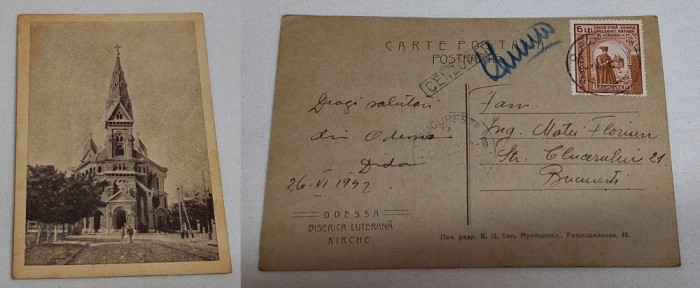 CARTE POSTALA
POSTKARTE
CENZURAT
6 LEI
TRANSNISTRIA
BUCUREȘTI
Dragi salutări
din Odessa
Dida
26.VI 1942
Fam.
Ing. Matei Florian
Str. Clucerului 21
București
ODESSA
BISERICA LUTERANĂ
KIRCHE
Печ. разр. В. Ц. Тип. Муниципал., Ришельевская, 49.